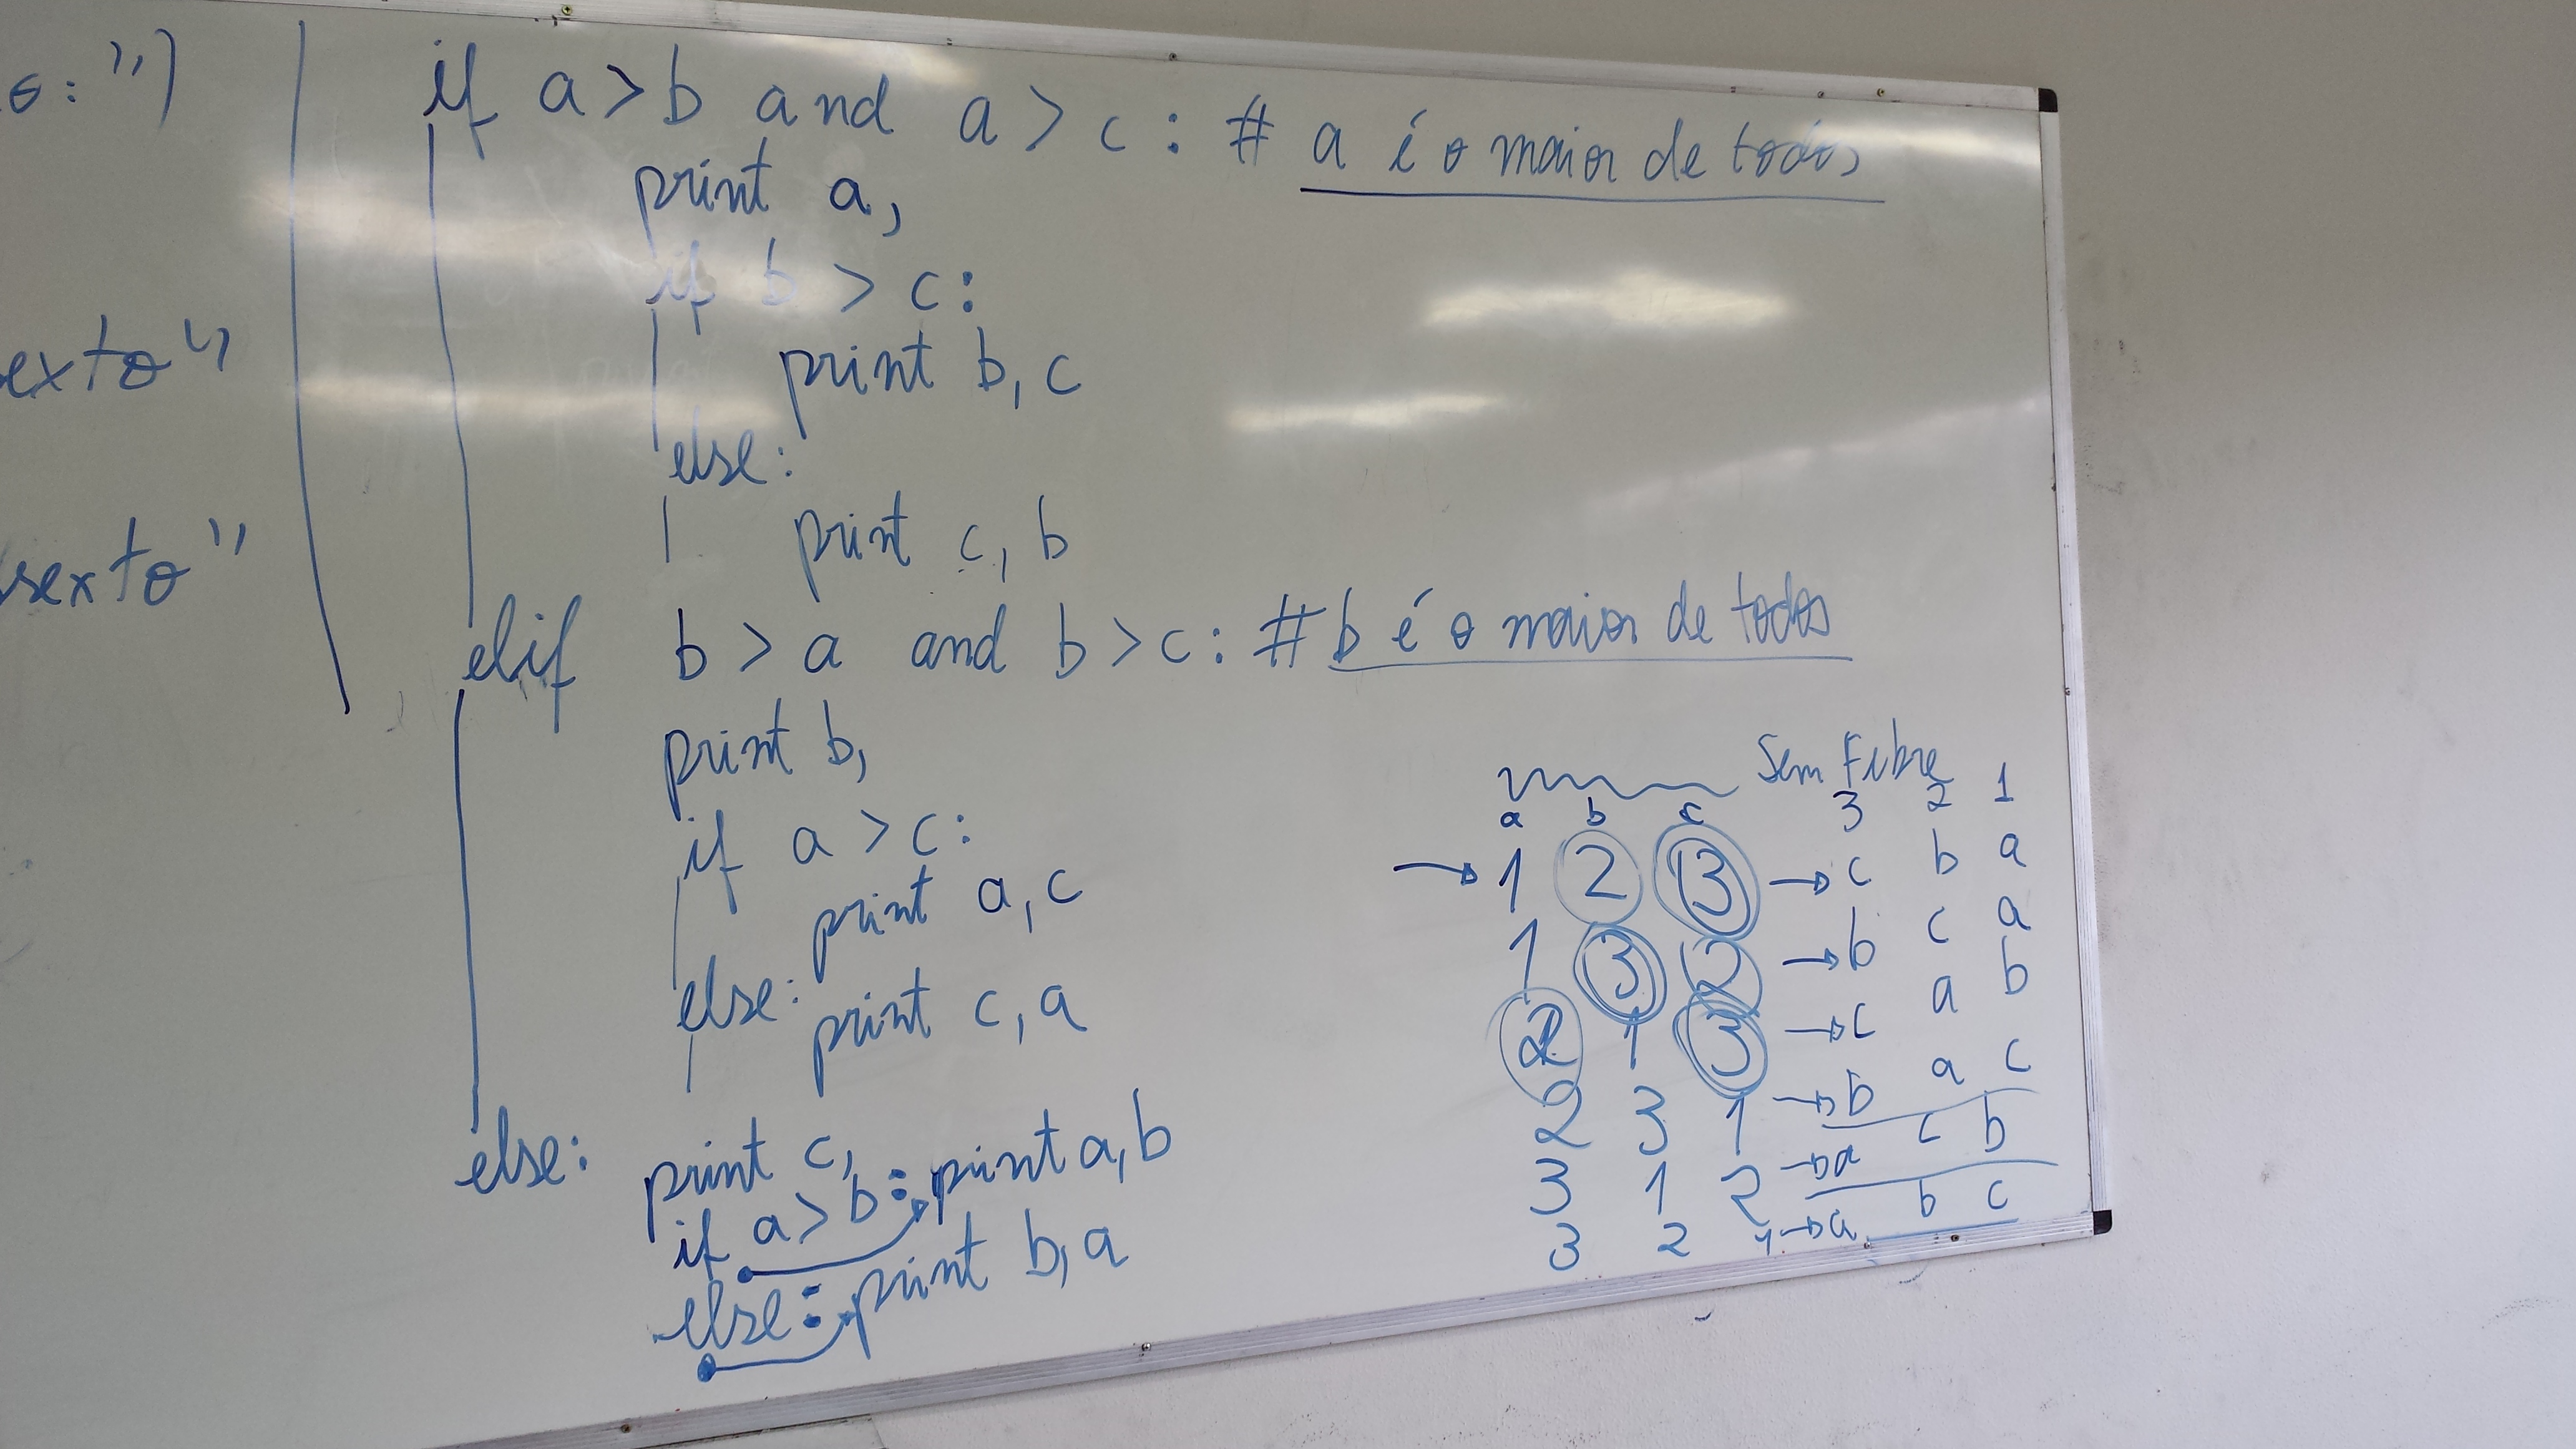 o: ")
exto"
sexto"
if a > b and a > c : # a é o maior de todos
print a,
if b > c :
print b, c
else :
print c, b
elif b > a and b > c : # b é o maior de todos
print b,
if a > c :
print a, c
else :
print c, a
else : print c,
if a > b : print a, b
else : print b, a
Sem Febre
a b c 3 2 1
1 2 3 → c b a
1 3 2 → b c a
2 1 3 → c a b
2 3 1 → b a c
3 1 2 → a c b
3 2 1 → a b c